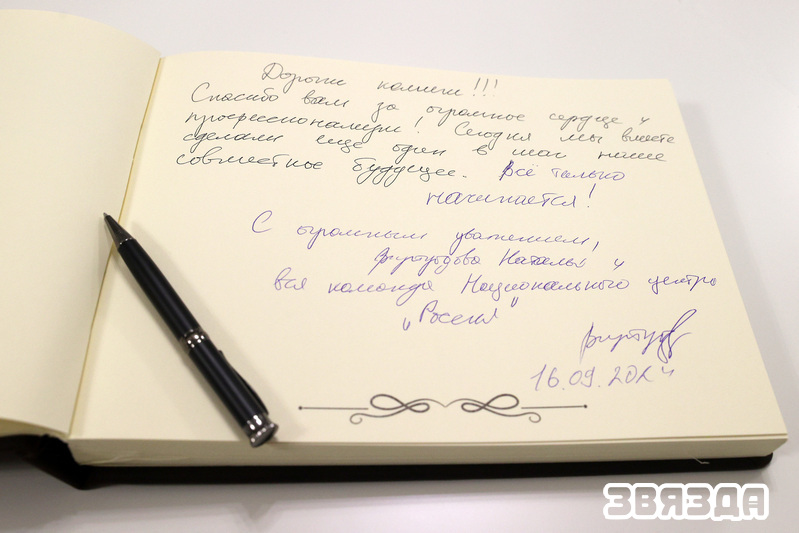 Дорогие коллеги!!!
Спасибо вам за огромное сердце и
профессионализм! Сегодня мы вместе
сделали еще один шаг в наше
совместное будущее. Всё только
начинается!
С огромным уважением,
Виртуозова Наталья и
вся команда Национального центра
„Россия"
16.09.2024
ЗВЯЗДА